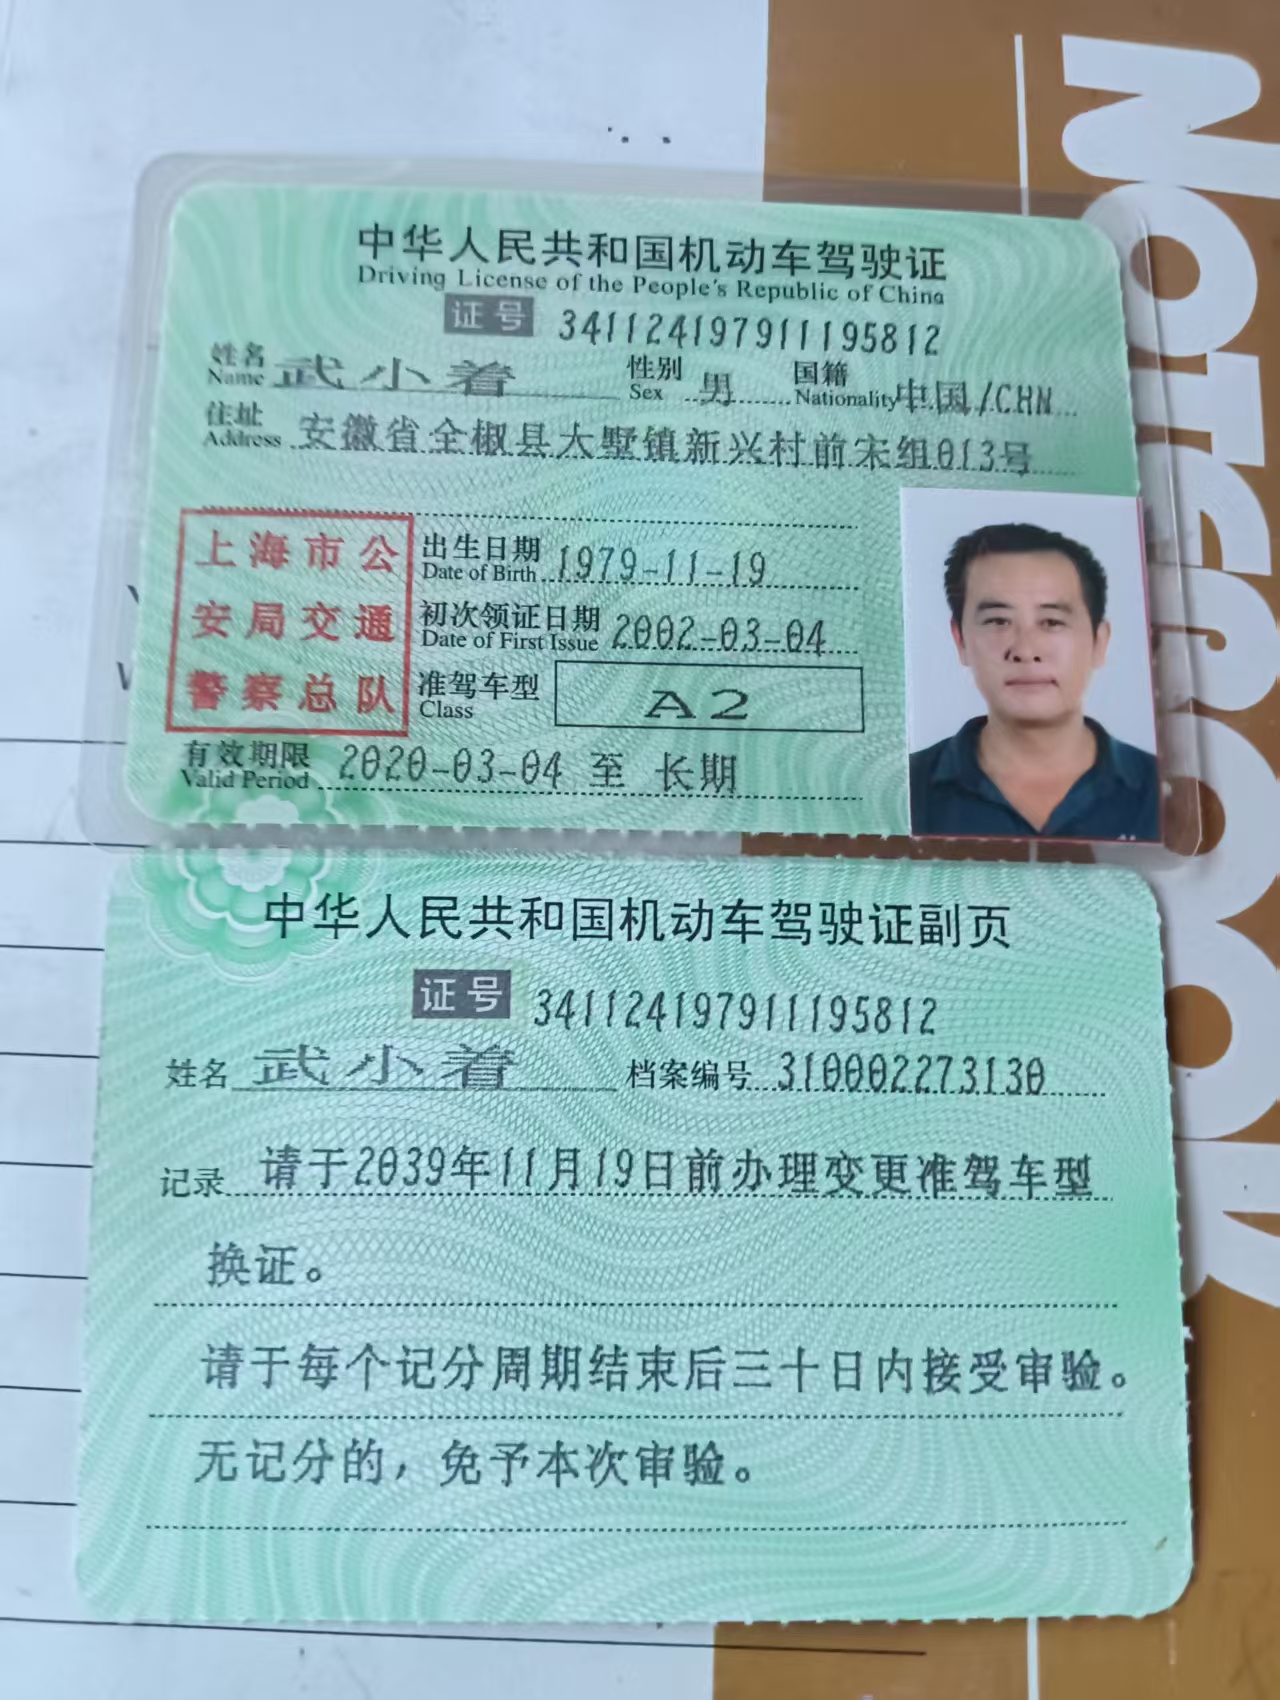 中华人民共和国机动车驾驶证
Driving License of the People's Republic of China
证号 341124197911195812
姓名 Name 武小着 性别 Sex 男 国籍 Nationality 中国/CHN
住址 Address 安徽省全椒县大墅镇新兴村前宋组013号
上海市公
安局交通
警察总队
出生日期 Date of Birth 1979-11-19
初次领证日期 Date of First Issue 2002-03-04
准驾车型 Class A2
有效期限 Valid Period 2020-03-04 至 长期
中华人民共和国机动车驾驶证副页
证号 341124197911195812
姓名 武小着 档案编号 310002273130
记录 请于2039年11月19日前办理变更准驾车型
换证。
请于每个记分周期结束后三十日内接受审验。
无记分的，免予本次审验。